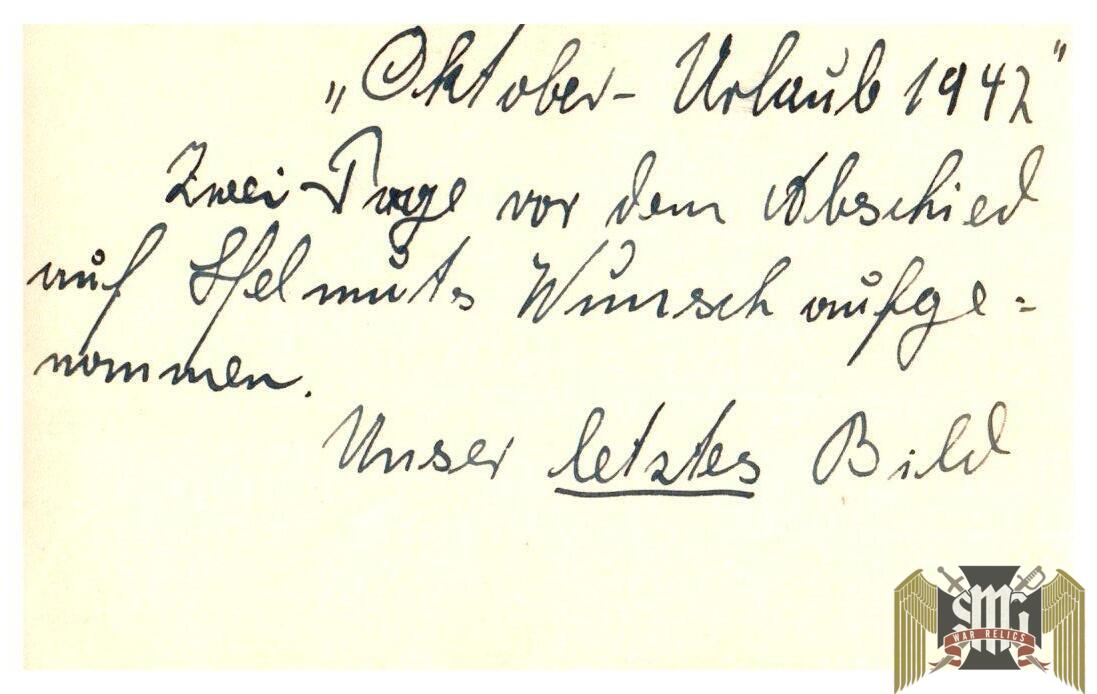 „Oktober- Urlaub 1942"
Zwei Tage vor dem Abschied
auf Helmuts Wunsch aufge=
nommen.
Unser letztes Bild
SMG
WAR RELICS